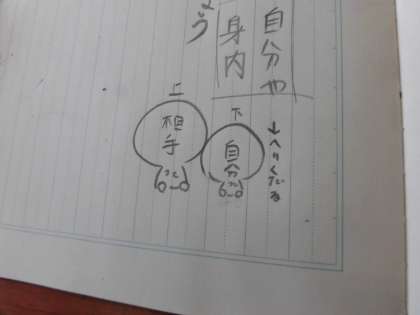 自分や
身内
よう
下
↓へりくだる
自分
上
相手